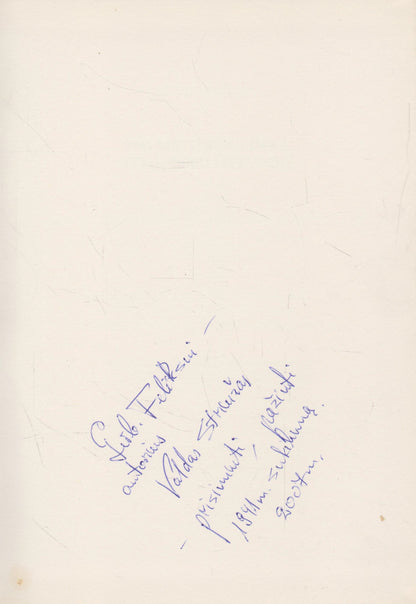 Gerb. Feliksui –
autorius
Valdas Striužas
– prisiminti – pažinti
1941m. sukilimą.
2007m.